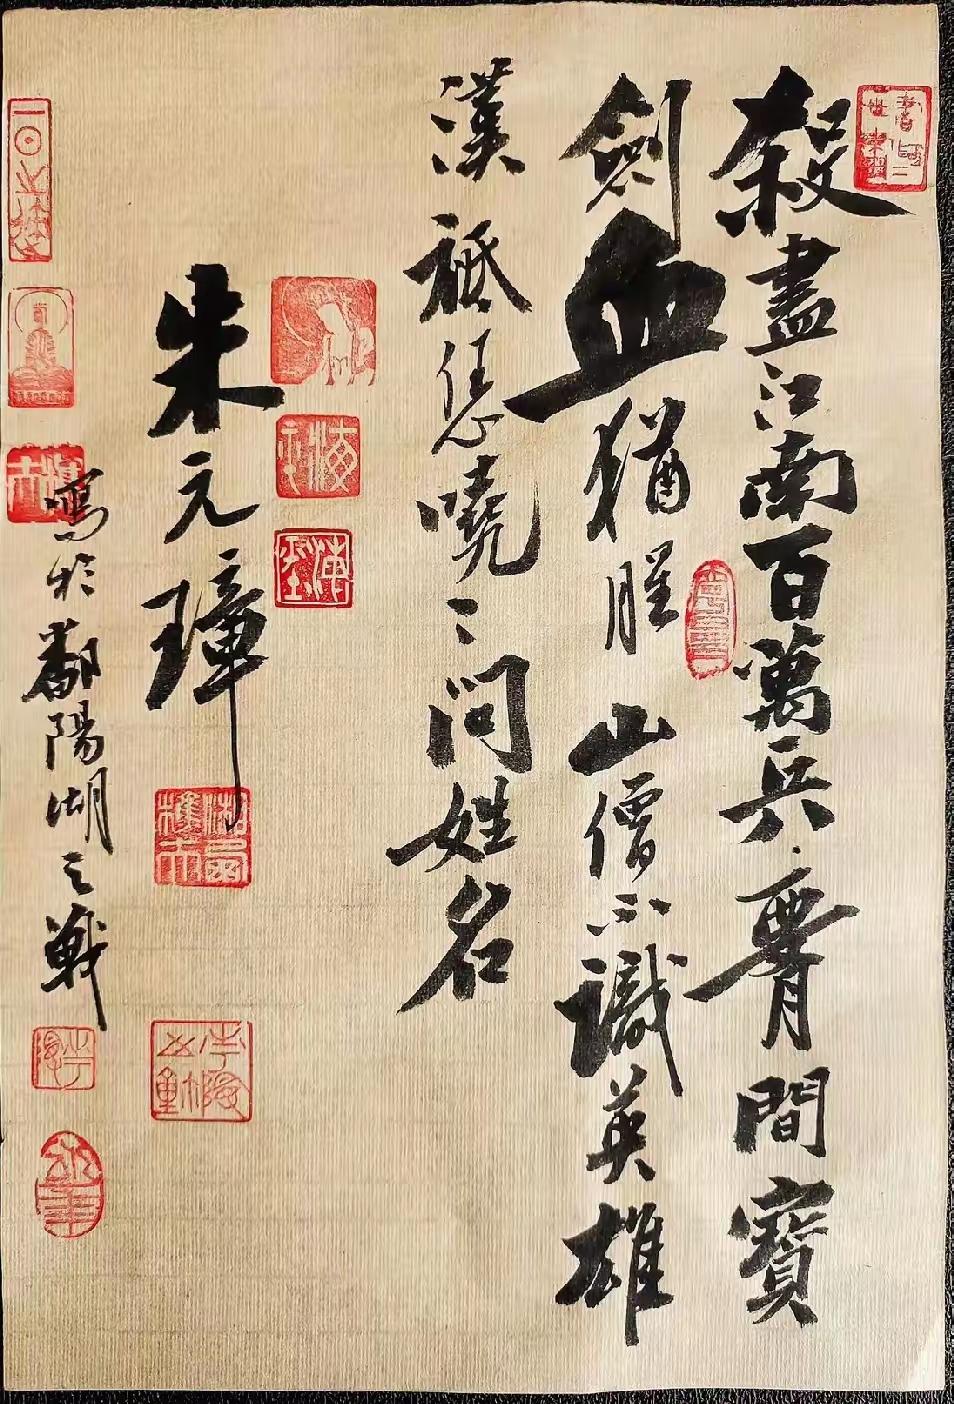 殺盡江南百萬兵腰間寶
劍血猶腥山僧不識英雄
漢祗恁嘵〻問姓名
朱元璋
寫於鄱陽湖之戰